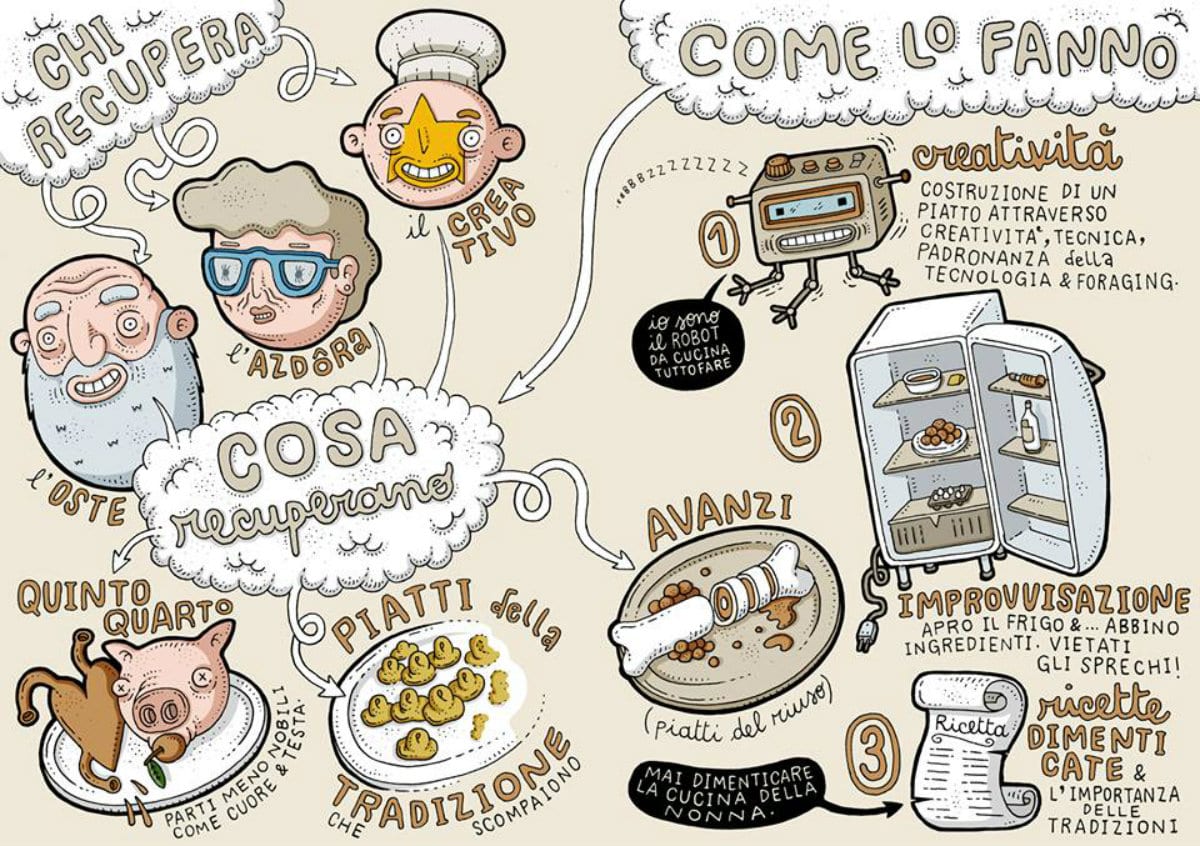 CHI
RECUPERA
il CREA
TIVO
l'AZDÔRA
l'OSTE
COSA
recuperano
QUINTO
QUARTO
PARTI MENO NOBILI
COME CUORE & TESTA.
PIATTI della
TRADIZIONE
CHE SCOMPAIONO
AVANZI
(piatti del riuso)
COME LO FANNO
BBBZZZZZZZZ
1
creatività
COSTRUZIONE DI UN
PIATTO ATTRAVERSO
CREATIVITA', TECNICA,
PADRONANZA della
TECNOLOGIA & FORAGING.
io sono
il ROBOT
DA CUCINA
TUTTOFARE
2
IMPROVVISAZIONE
APRO IL FRIGO &... ABBINO
INGREDIENTI. VIETATI
GLI SPRECHI!
3
Ricetta
ricette
DIMENTI
CATE &
L'IMPORTANZA
DELLE
TRADIZIONI
MAI DIMENTICARE
LA CUCINA DELLA
NONNA.